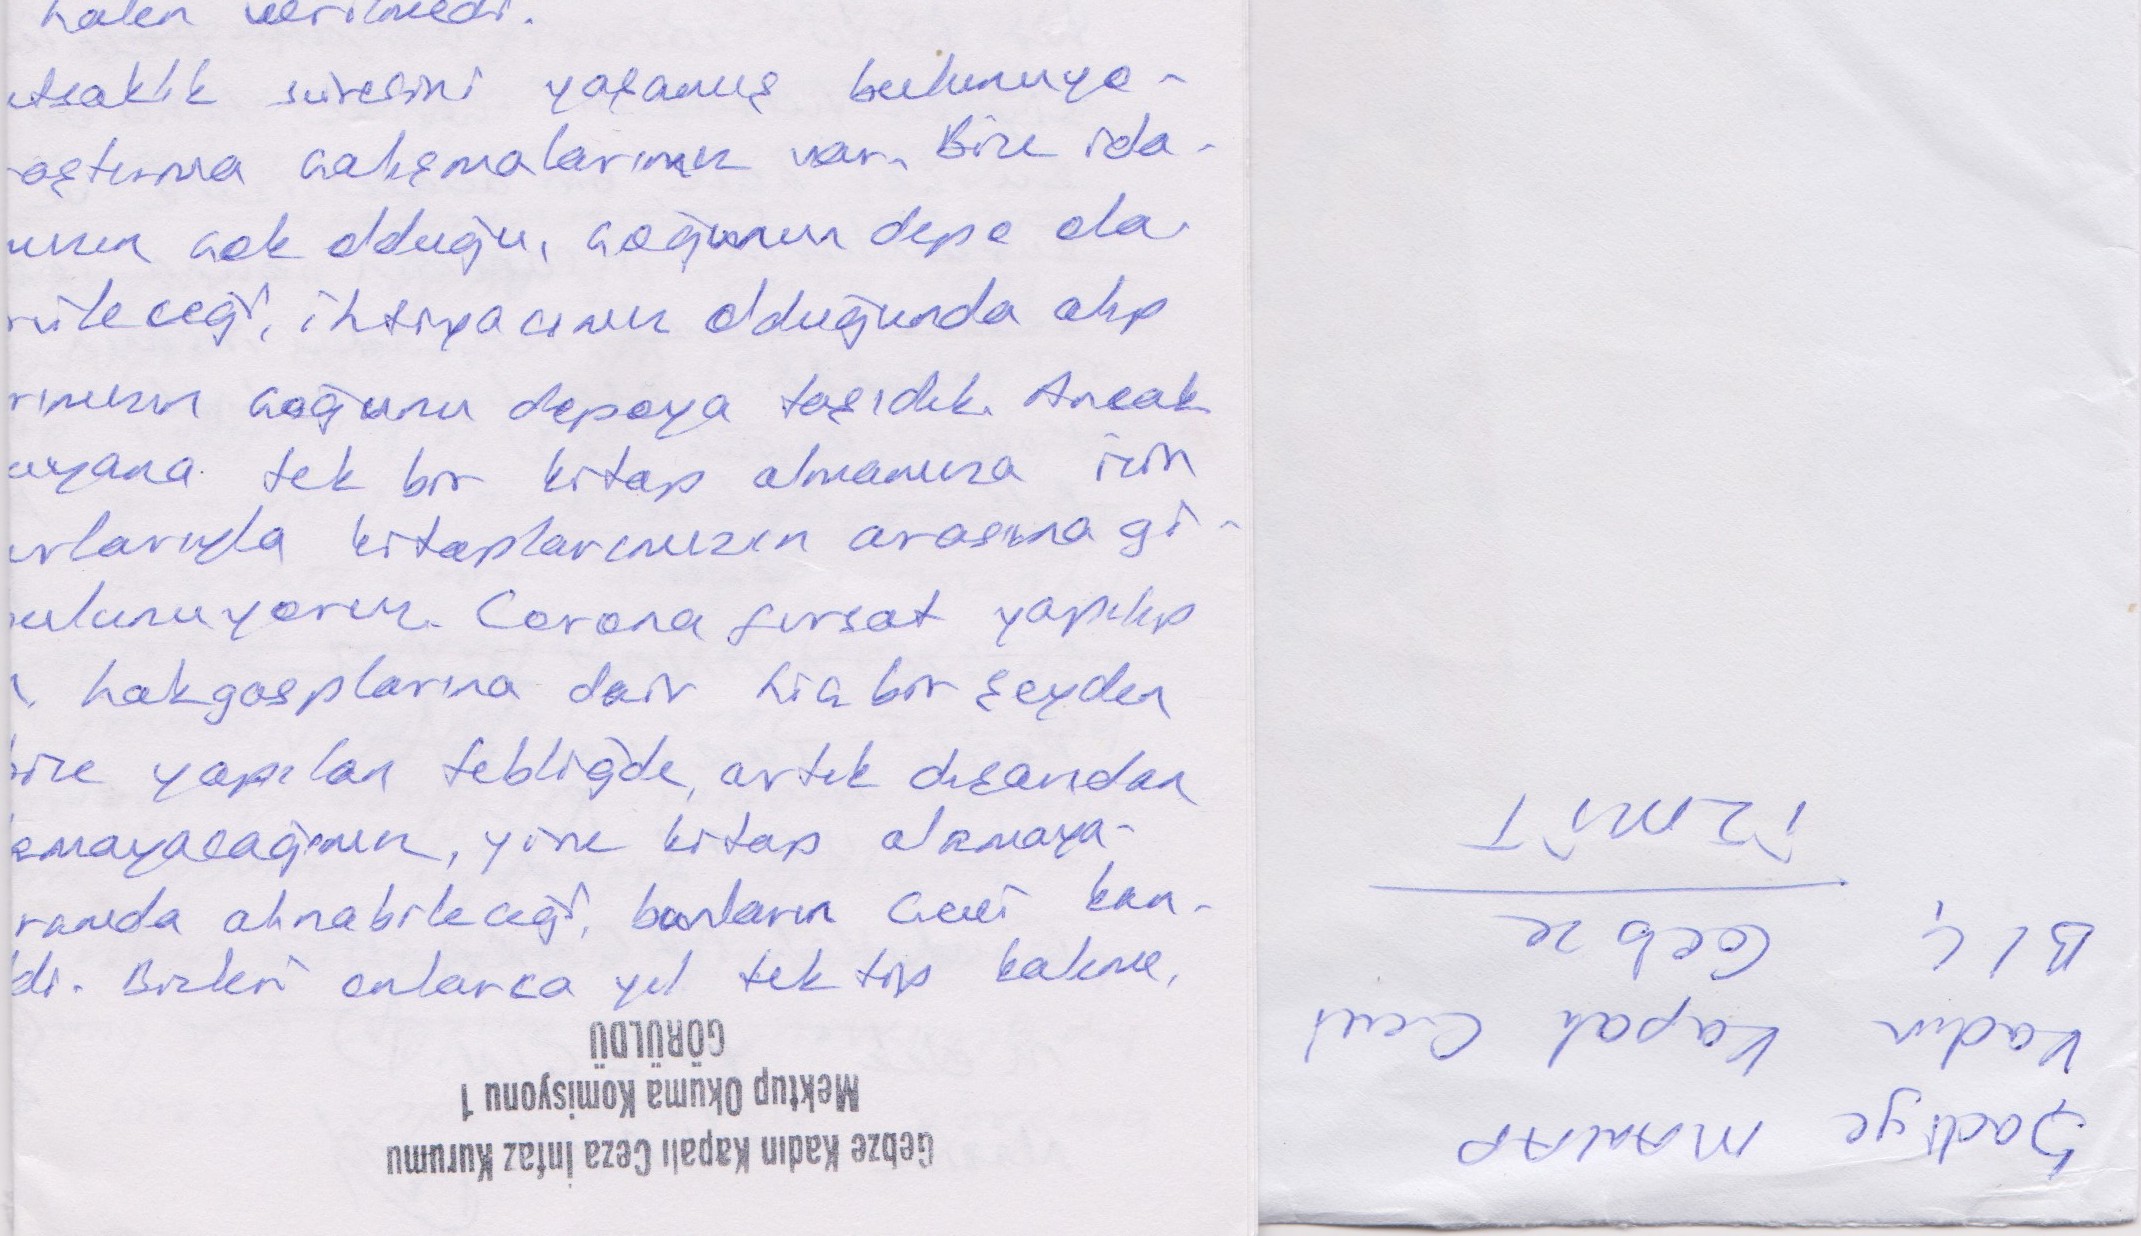 halen verilmedi.
utsaklık süresini yaşamış bulunuyo-
aştırma çalışmalarımız var. Bize ida-
mızın çok olduğu, çoğunun depo ola-
rüleceği, ihtiyacımız olduğunda alıp
rımızın çoğunu depoya taşıdık. Ancak
uyana tek bir kitap almamıza izin
ırlarıyla kitaplarımızın arasına gi-
bulunuyoruz. Corona fırsat yapılıp
hakgasplarına dair hiç bir şeyden
bize yapılan tebliğde, artık dışarıdan
amayacağımız, yine kitap alamaya-
ramıda alınabileceği, bunların cezai kan-
di. Bizleri onlarca yıl tek tip kalıme,
Gebze Kadın Kapalı Ceza İnfaz Kurumu
Mektup Okuma Komisyonu 1
GÖRÜLDÜ
Şadiye MANAP
Kadın Kapalı Cezai
B1Ç Gebze
İZMİT